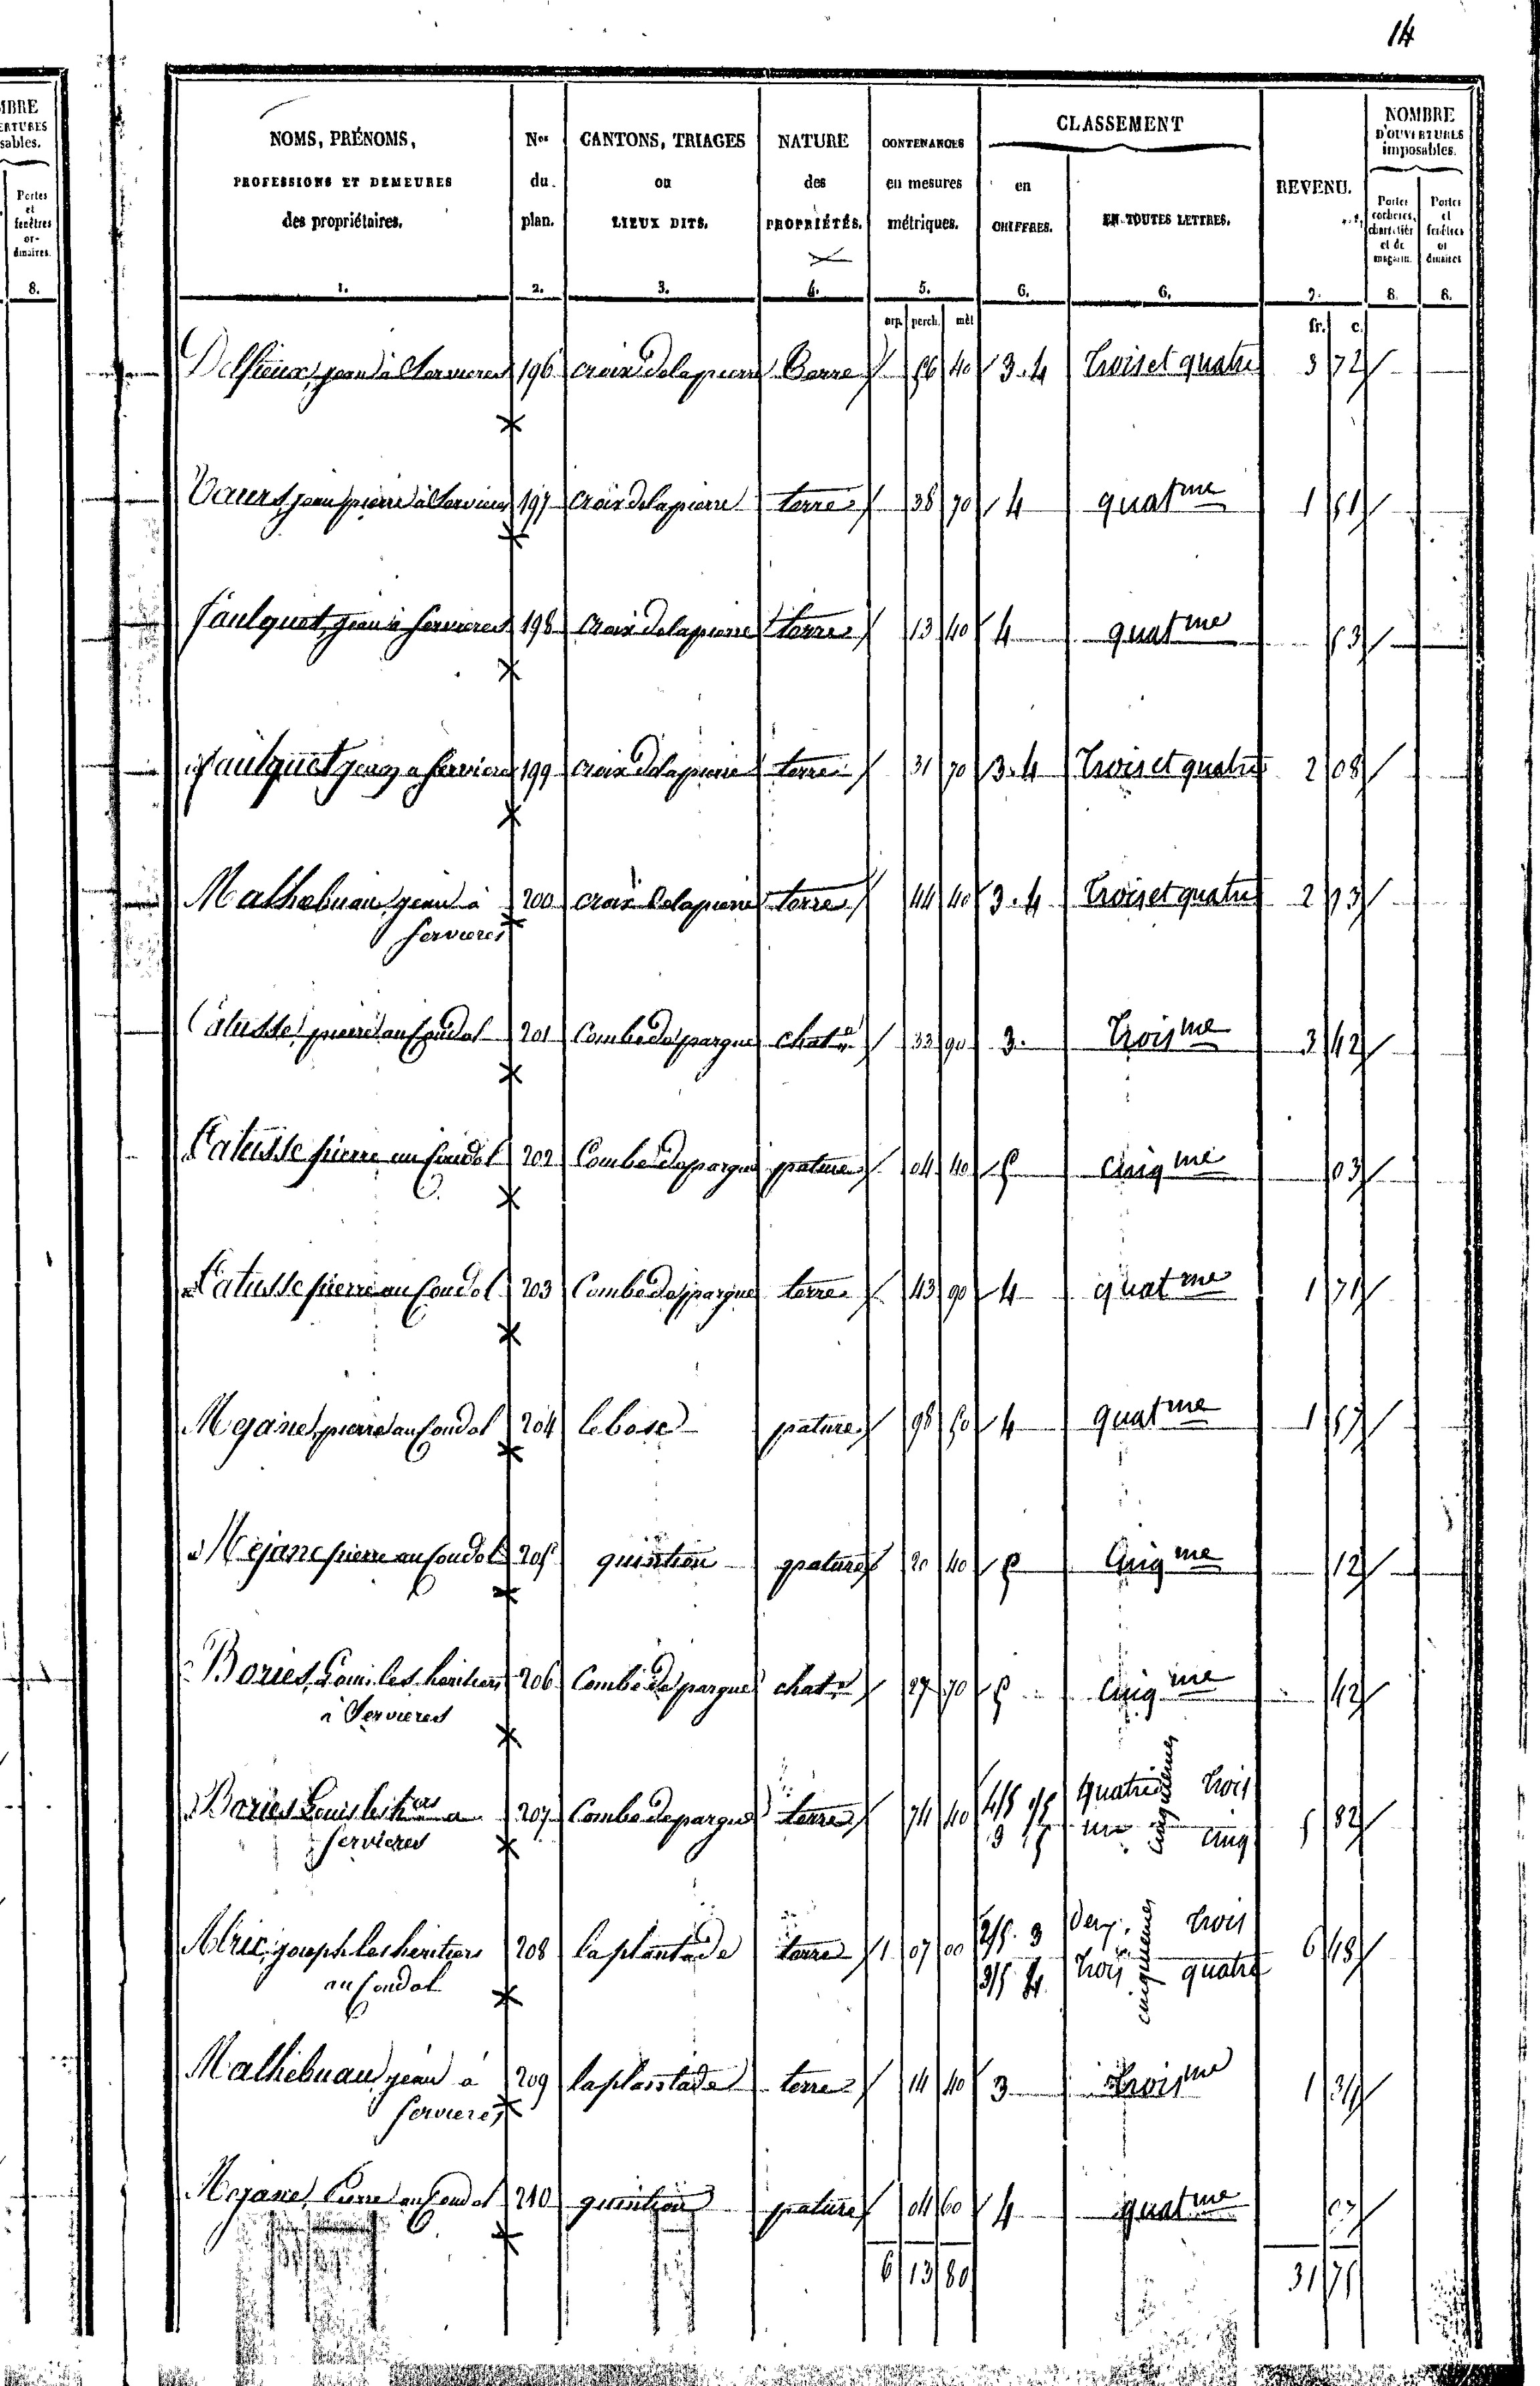 14
MBRE
ERTURES
sables.
Portes
et
fenêtres
or-
dinaires.
8.
NOMS, PRÉNOMS,
PROFESSIONS ET DEMEURES
des propriétaires.
1.
Nos
du
plan.
2.
CANTONS, TRIAGES
ou
LIEUX DITS.
3.
NATURE
des
PROPRIÉTÉS.
4.
CONTENANCES
en mesures
métriques.
5.
arp. perch. mèt
CLASSEMENT
en
CHIFFRES.
6.
EN TOUTES LETTRES.
6.
REVENU.
7.
fr. c.
NOMBRE
D'OUVERTURES
imposables.
Portes
cochères,
charretières
et de
magasin.
8.
Portes
et
fenêtres
or
dinaires
8.
jean à Servieres 196 croix de la pierre Terre 56 40 3.4 trois et quatre 3 72
jean pierre à Servieres 197 croix de la pierre terre 38 70 4 quatme 1 51
faulquet jean à Servieres 198 croix de la pierre terre 13 40 4 quatme 53
faulquet jean a Servieres 199 croix de la pierre terre 31 70 3.4 trois et quatre 2 08
Malhebuau jean à 200 croix de la pierre terre 44 40 3.4 trois et quatre 2 93
Servieres
Catusse pierre au Coudol 201 Combe de pargue chatne 33 90 3. troisme 3 42
Catusse pierre au Coudol 202 Combe de pargue pature 04 40 5 cinqme 03
Catusse pierre au Coudol 203 Combe de pargue terre 43 90 4 quatme 1 71
Mejane pierre au Coudol 204 le bosc pature 98 50 4 quatme 1 57
Mejane pierre au Coudol 205 pature 20 40 5 Cinqme 12
Bories Louis les heritiers 206 Combe de pargue chatne 27 70 5 cinqme 42
à Servieres
Bories Louis les hers a 207 Combe de pargue terre 74 40 4/5 3 1/5 5 quatre cinquiemes trois un cinq 5 82
Servieres
Alric joseph les heritiers 208 la plantade terre 1 07 00 2/5. 3 3/5 4. deux trois cinquiemes trois quatre 6 48
au Coudol
Malhebuau jean à 209 la plantade terre 14 40 3 troisme 1 34
Servieres
Mejane Pierre au Coudol 210 pature 04 60 4 quatme 07
6 13 80 31 75